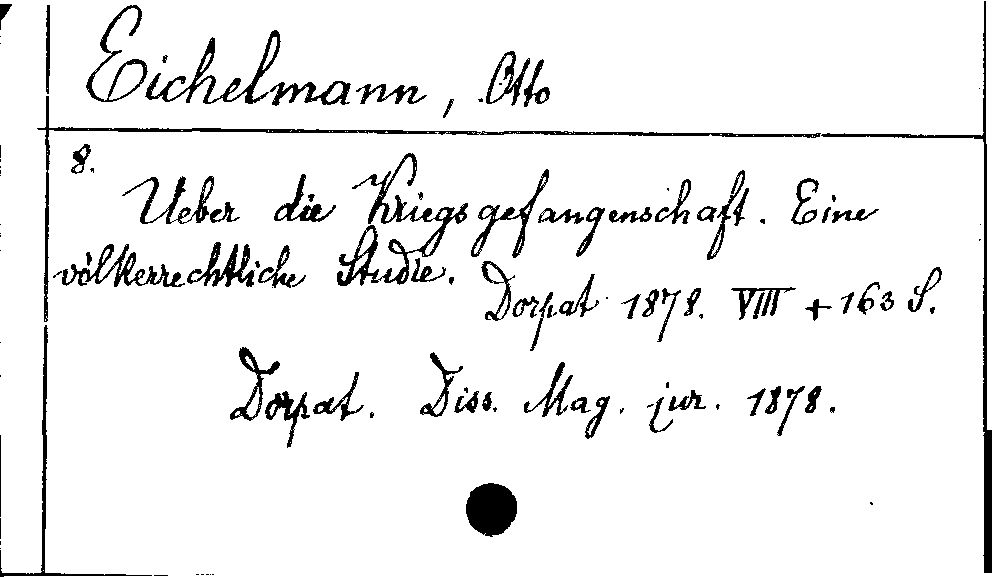 Eichelmann, Otto
8.
Ueber die Kriegsgefangenschaft. Eine
völkerrechtliche Studie.
Dorpat 1878. VIII + 163 S.
Dorpat. Diss. Mag. jur. 1878.